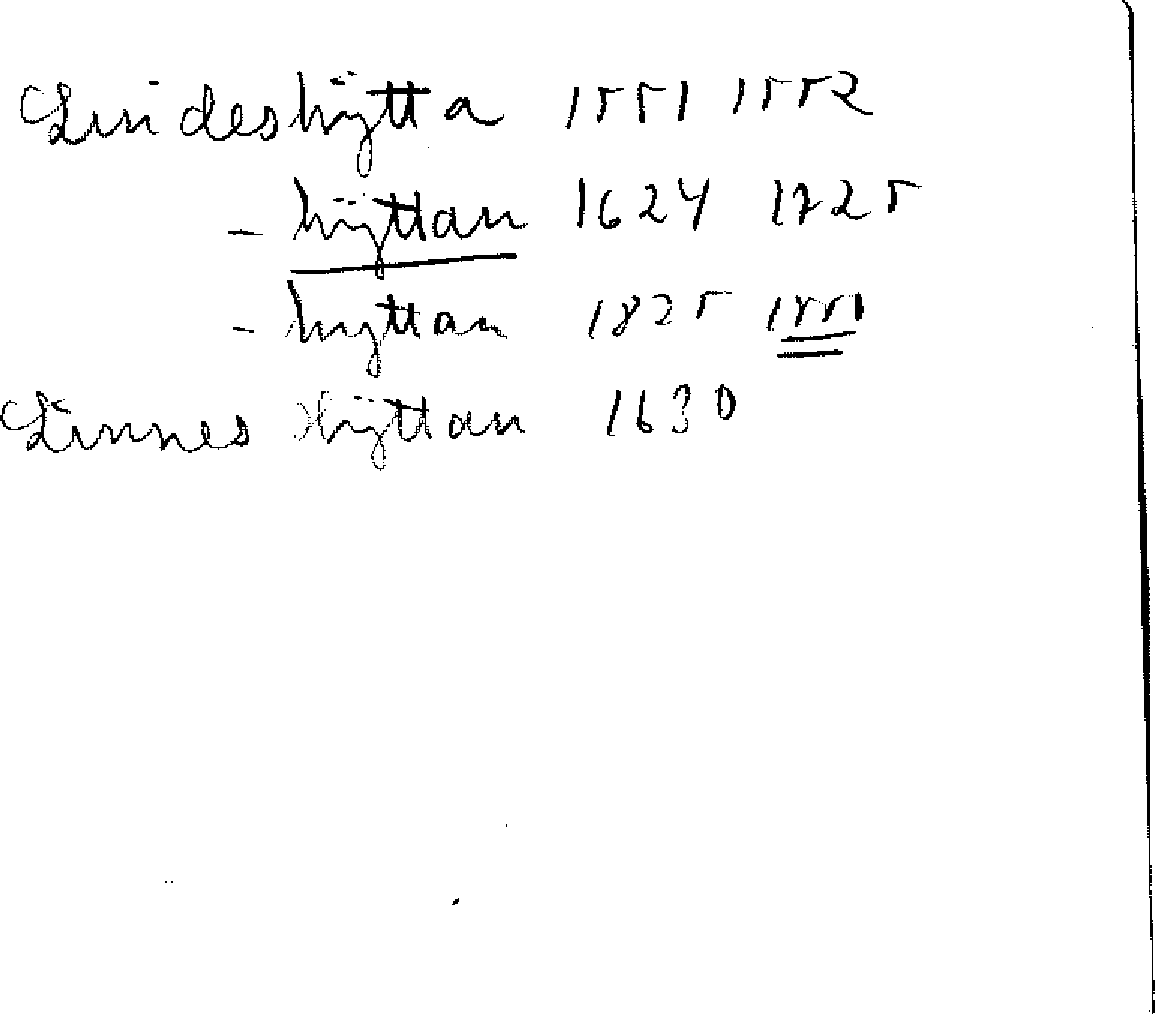 Lindeshÿtta 1551 1552
- hÿttan 1624 1725
- hyttan 1825 1551
Linnes hÿttan 1630